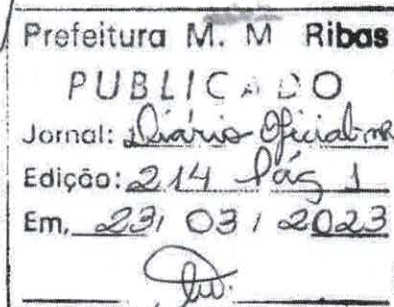 Prefeitura M. M Ribas
PUBLICADO
Jornal: Diário Oficial MR
Edição: 214 Pág 1
Em, 23/ 03 / 2023